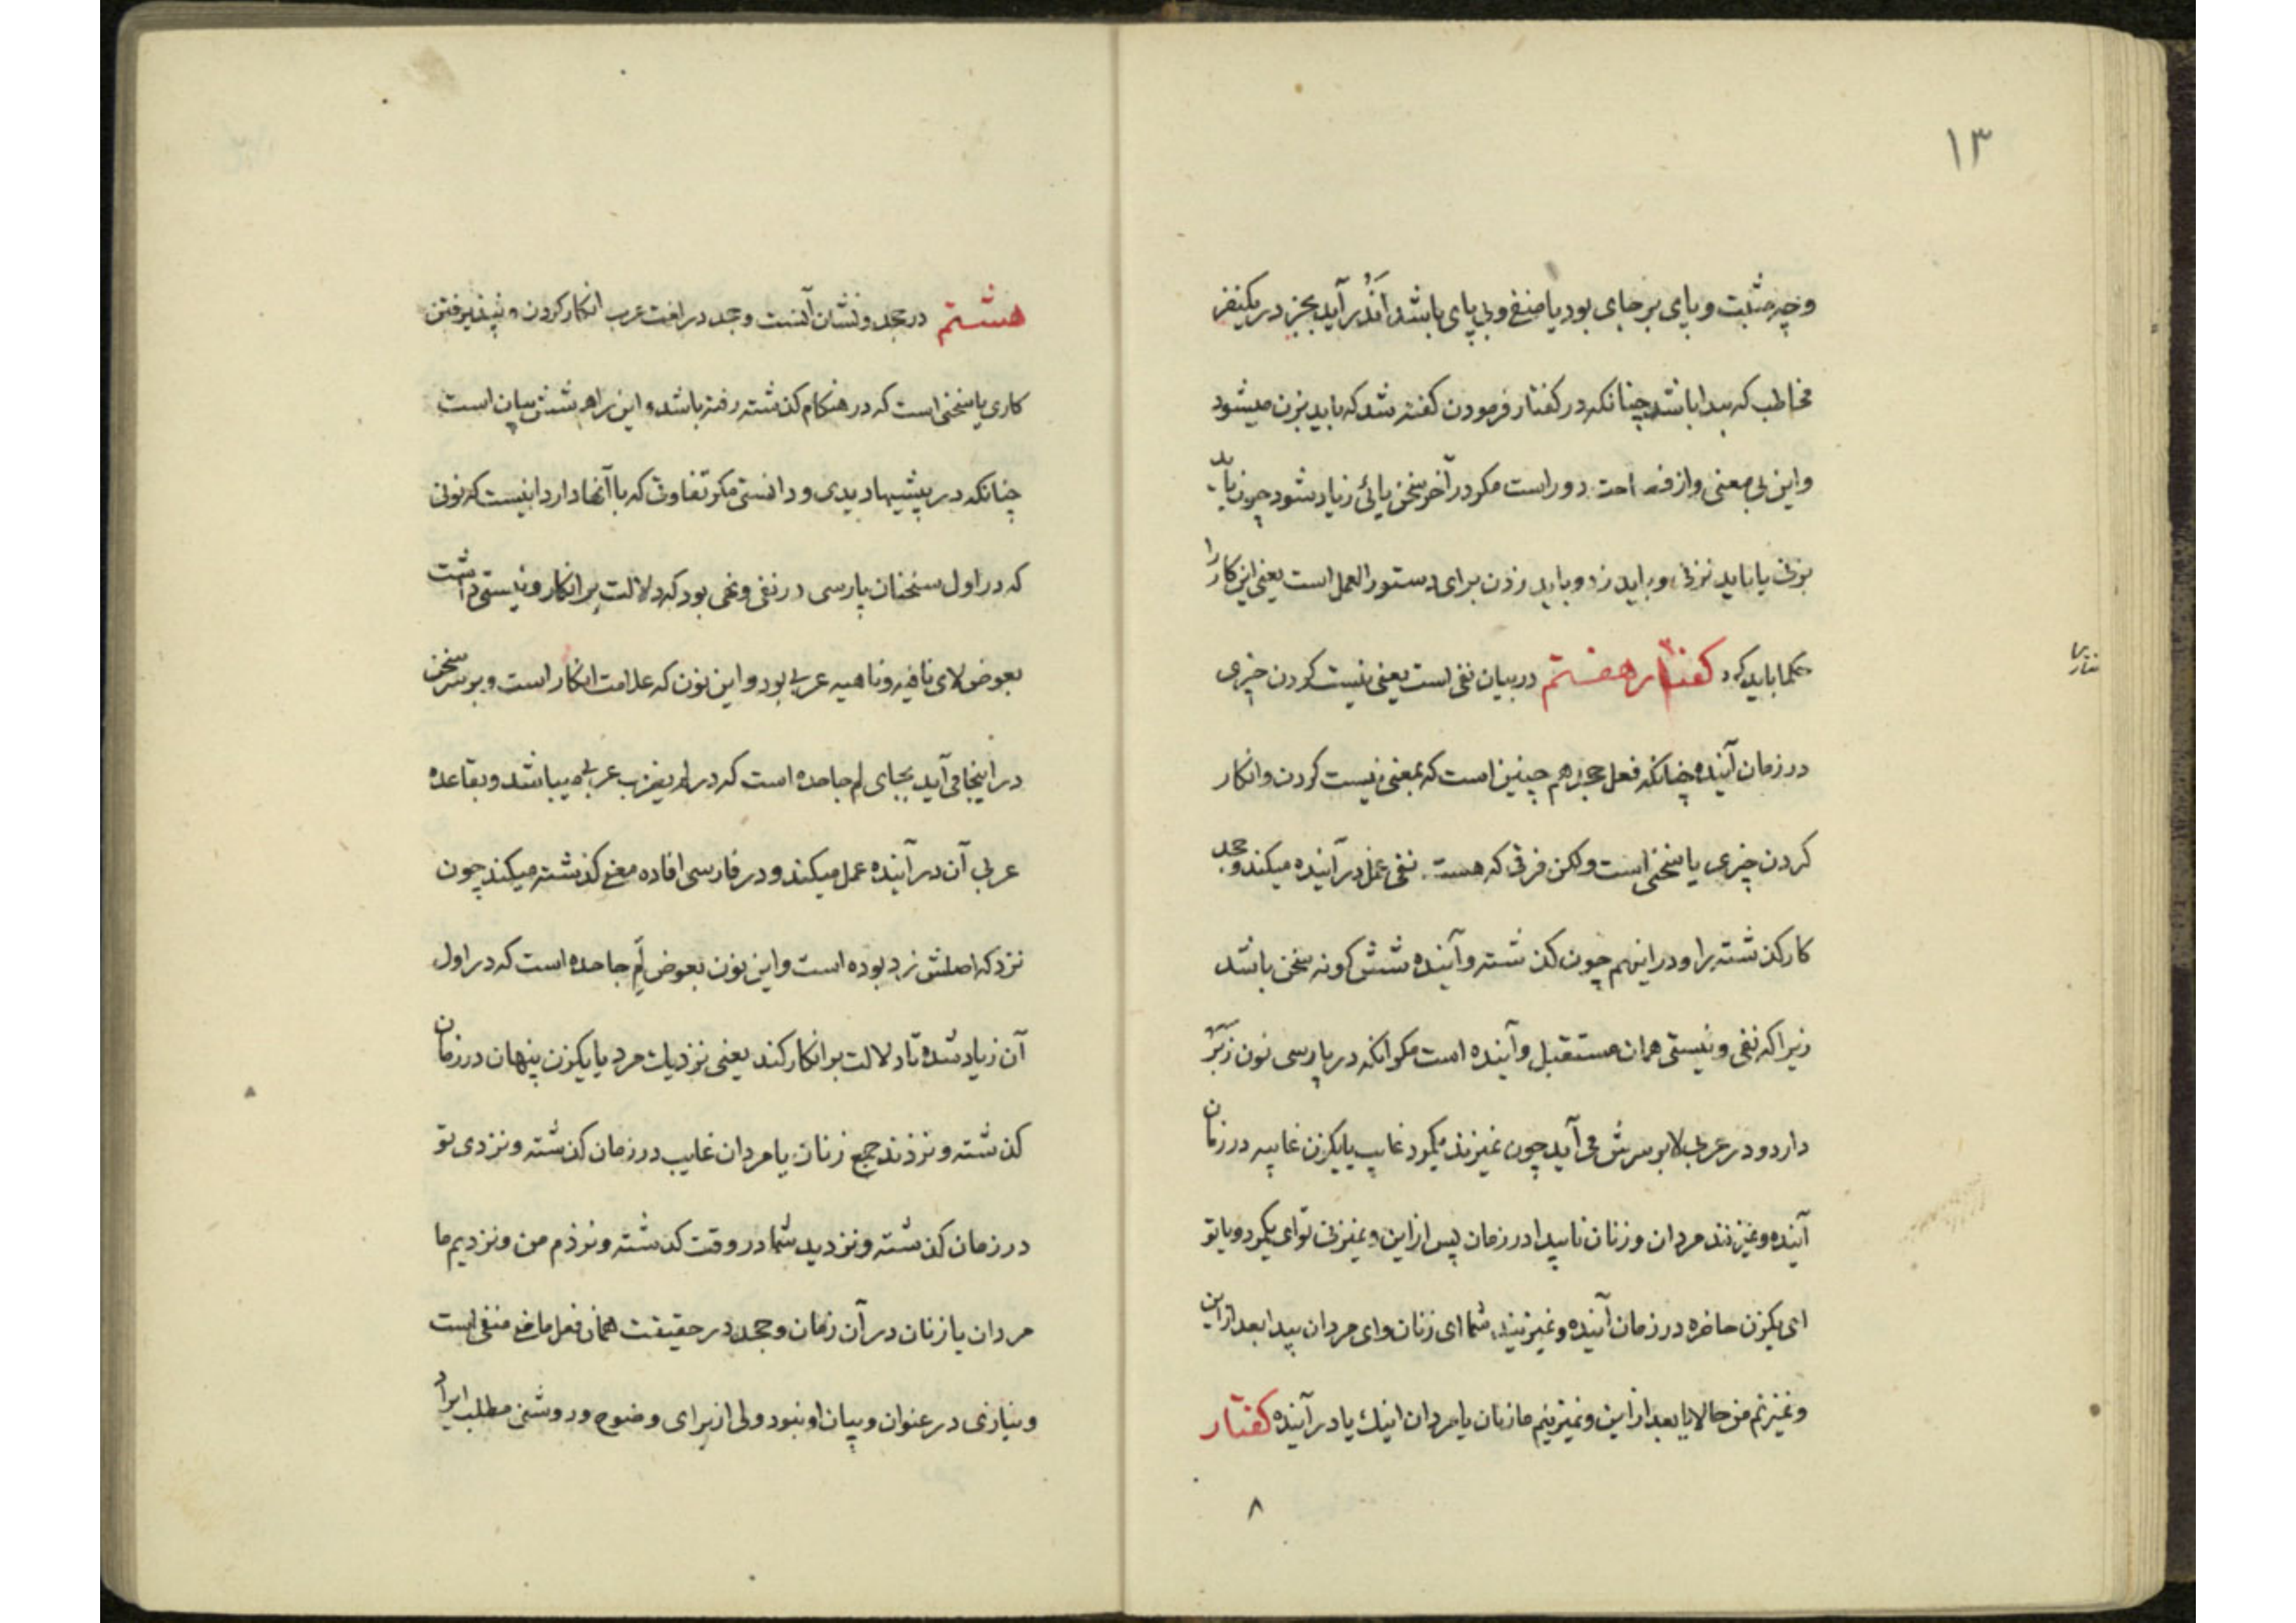 ۱۳
وچه مثبت و بپای برجای بود یا منفی و بی پای باشد اندر آید بجز در یکنفر
مخاطب که پیدا باشد چنانکه در کفتار فرمودن کفته شد که باید بزن میشود
و این بی معنی و از دور است مکر در آخر سخن یائی زیاد شود چون باید
بزنی یا نباید نزنی و باید زد و باید زدن برای دستور العمل است یعنی این کار را
حکما باید کرد کفتار هفتم در بیان نفی است یعنی نیست کردن چیزی
در زمان آینده چنانکه فعل جحد هم چنین است که بمعنی نیست کردن و انکار
کردن چیزی یا سخنی است ولکن فرقی که هست نفی عمل در آینده میکند و جحد
کار کذشته را و در اینهم چون کذشته و آینده شش کونه سخن باشد
زیرا که نفی و نیستی همان مستقبل و آینده است مکر انکه در پارسی نون زبر
دارد و در عربی لا بر سرش می آید چون نمیزند یکمرد غایب یا یکزن غایبه در زمان
آینده و نمیزنند مردان و زنان ناپیدا در زمان پس از این و نمیزنی تو ای یکمرد و یا تو
ای یکزن حاضره در زمان آینده و نمیزنید شما ای زنان و ای مردان پیدا بعد از این
و نمیزنم من حالا یا بعد از این و نمیزنیم ما زنان یا مردان اینك یا در آینده کفتار
۸
هشتم در جحد و نشان آنست و جحد در لغت عرب انکار کردن و نپذیرفتن
کاری یا سخنی است که در هنکام کذشته رفته باشد و این را هم شش سان است
چنانکه در پیشیها دیدی و دانستی مکر تفاوتی که با آنها دارد اینست که نونی
که در اول سخنان پارسی در نفی و نهی بود که دلالت بر انکار و نیستی داشت
بعوض لای نافیه و ناهیه عربی بود و این نون که علامت انکار است و بر سر سخن
در اینجا می آید بجای لم جاحده است که در لم یضرب عربی میباشد و بقاعده
عربی آن در آینده عمل میکند و در فارسی افاده معنی کذشته میکند چون
نزد که اصلش زد بوده است و این نون بعوض لم جاحده است که در اول
آن زیاد شده تا دلالت بر انکار کند یعنی نزد یك مرد یا یکزن پنهان در زمان
کذشته و نزدند جمع زنان یا مردان غایب در زمان کذشته و نزدی تو
در زمان کذشته و نزدید شما در وقت کذشته و نزدم من و نزدیم ما
مردان یا زنان در آن زمان و جحد در حقیقت همان فعل ماضی منفی است
و نیازی در عنوان و بیان او نبود ولی از برای وضوح و روشنی مطلب ایراد